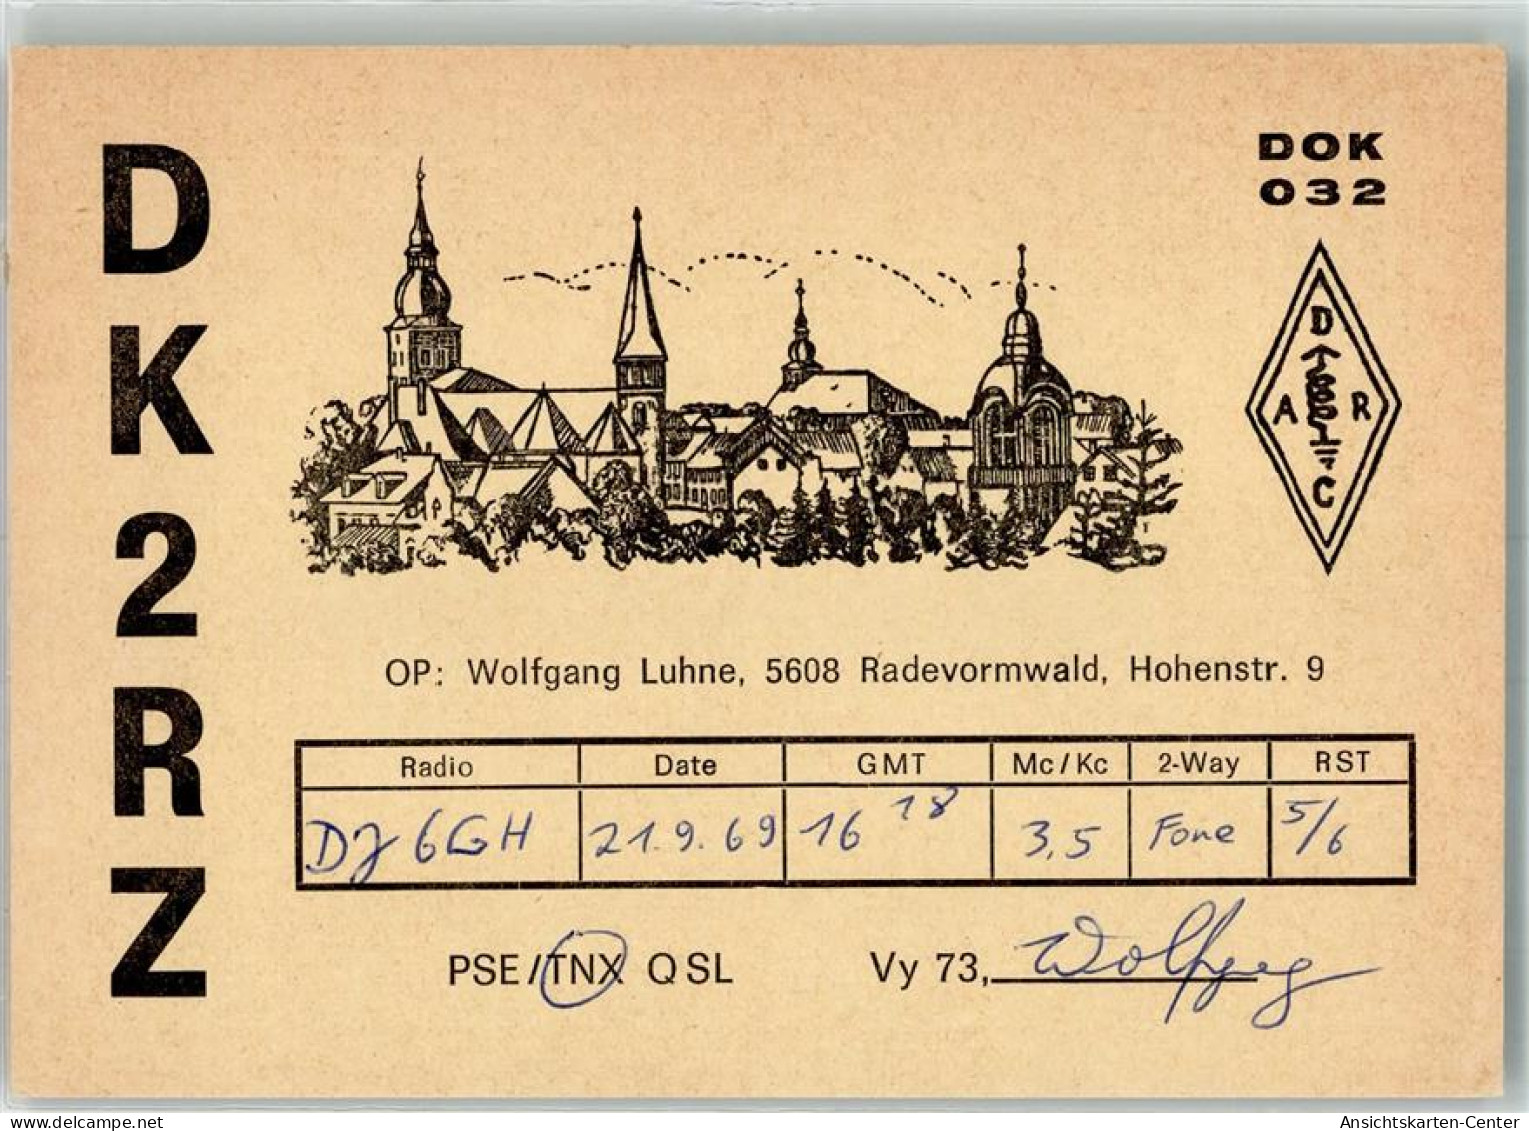 DOK
032
DK2RZ
D
A R
C
OP: Wolfgang Luhne, 5608 Radevormwald, Hohenstr. 9
Radio Date GMT Mc/Kc 2-Way RST
DJ6GH 21.9.69 16 18 3,5 Fone 5/6
PSE/TNX QSL Vy 73, Wolfgang
www.delcampe.net Ansichtskarten-Center